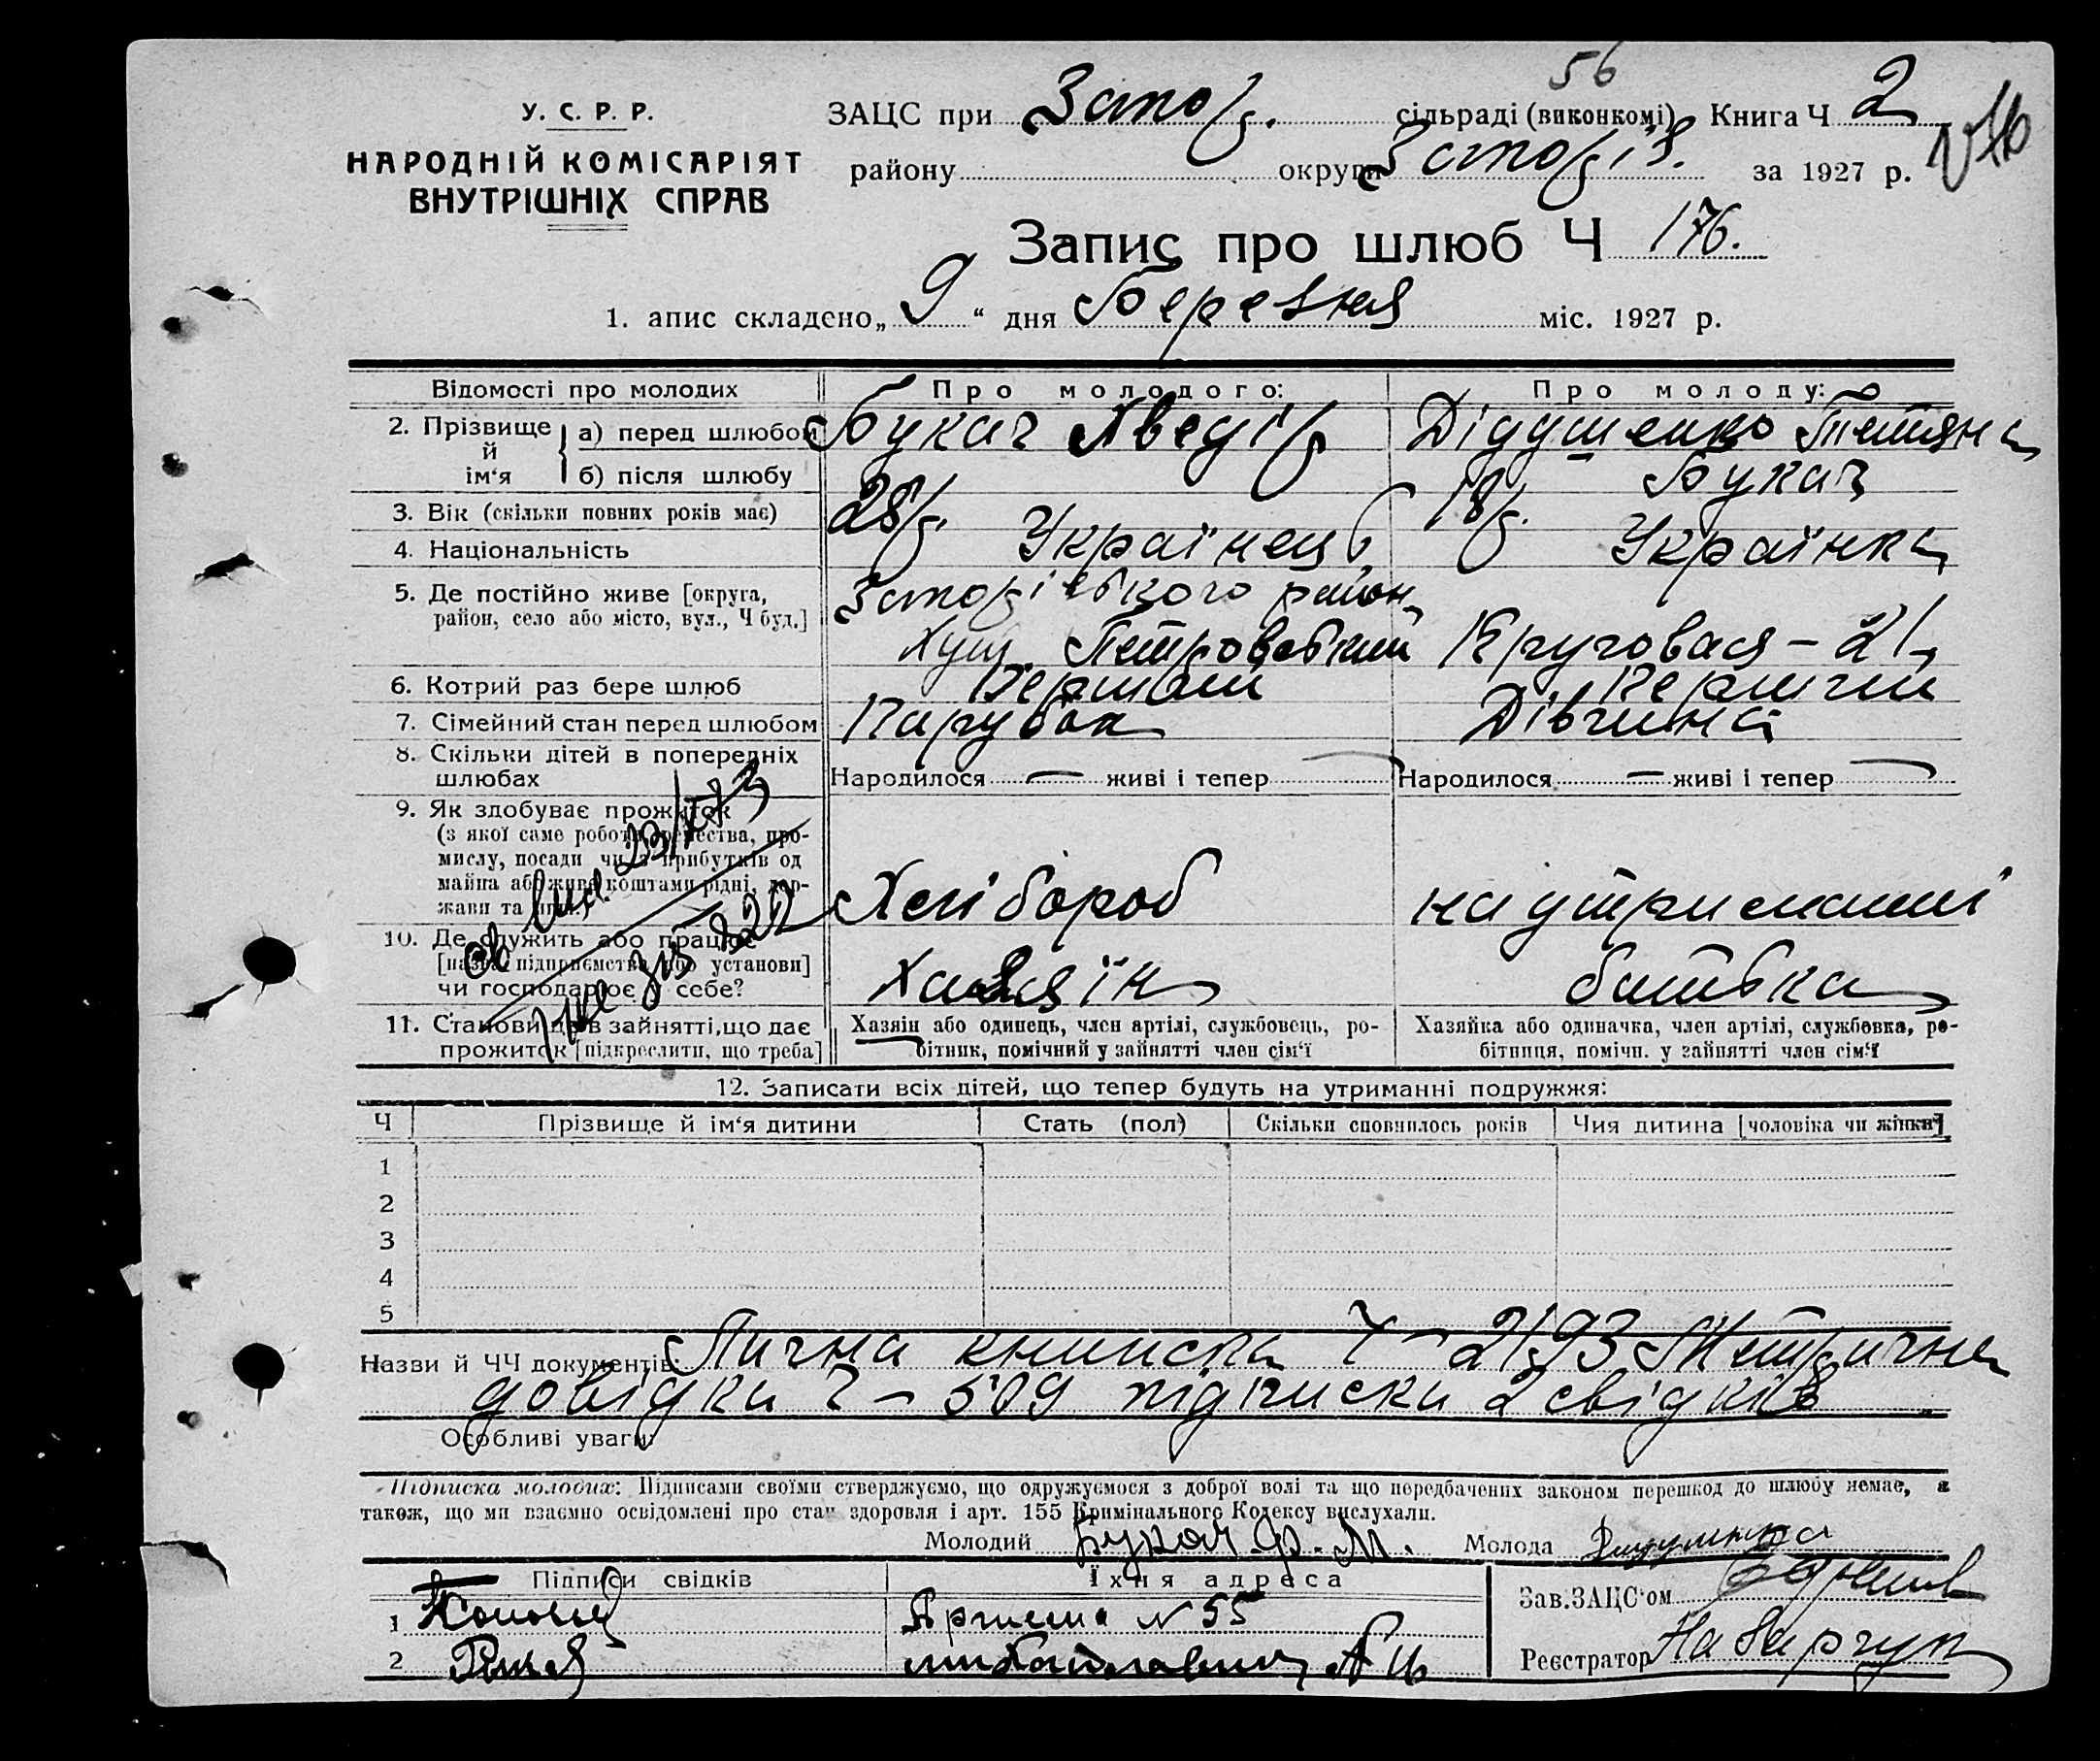 56
У. С. Р. Р.
НАРОДНІЙ КОМІСАРІЯТ
ВНУТРІШНІХ СПРАВ
ЗАЦС при Запор. сільраді (виконкомі) Книга Ч 2
району округи Запоріз. за 1927 р.
Запис про шлюб Ч 176.
1. апис складено „ 9 “ дня Березня міс. 1927 р.
Відомості про молодих Про молодого: Про молоду:
2. Прізвище й ім‘я а) перед шлюбом Букач Хведір Дідушенко Тетяна
б) після шлюбу Букач
3. Вік (скільки повних років має) 28 р. 18 р.
4. Національність Українець Українка
5. Де постійно живе [округа, район, село або місто, вул., Ч буд.] Запорізького район. Хут. Петровський Кругова
6. Котрий раз бере шлюб Перший Перший
7. Сімейний стан перед шлюбом Парубок Дівчина
8. Скільки дітей в попередніх шлюбах Народилося — живі і тепер — Народилося — живі і тепер —
9. Як здобуває прожиток
(з якої саме роботи, ремества, про-
мислу, посади чи з прибутків од
майна або живе коштами рідні, дер-
жави та инш.) Хлібороб на утриманні
10. Де служить або працює
[назва підприємства або установи]
чи господарює у себе? Хазяїн батька
11. Становище в зайнятті, що дає
прожиток [підкреслити, що треба]
Хазяїн або одинець, член артілі, службовець, ро-
бітник, помічний у зайнятті член сім‘ї
Хазяйка або одиначка, член артілі, службовка, ро-
бітниця, помічн. у зайнятті член сім‘ї
12. Записати всіх дітей, що тепер будуть на утриманні подружжя:
Ч Прізвище й ім‘я дитини Стать (пол) Скільки сповнилось років Чия дитина [чоловіка чи жінки]
1
2
3
4
5
Назви й ЧЧ документів: Лична книжка Ч – 2193 Метрична
довідка Ч – 509 підписки 2 свідків
Особливі уваги:
Підписка молодих: Підписами своїми стверджуємо, що одружуємося з доброї волі та що передбачених законом перешкод до шлюбу немає, а
також, що ми взаємно освідомлені про стан здоровля і арт. 155 Кримінального Кодексу вислухали.
Молодий Букач Ф. М. Молода
Підписи свідків Їхня адреса Зав. ЗАЦС‘ом
1 № 55
2 Реєстратор